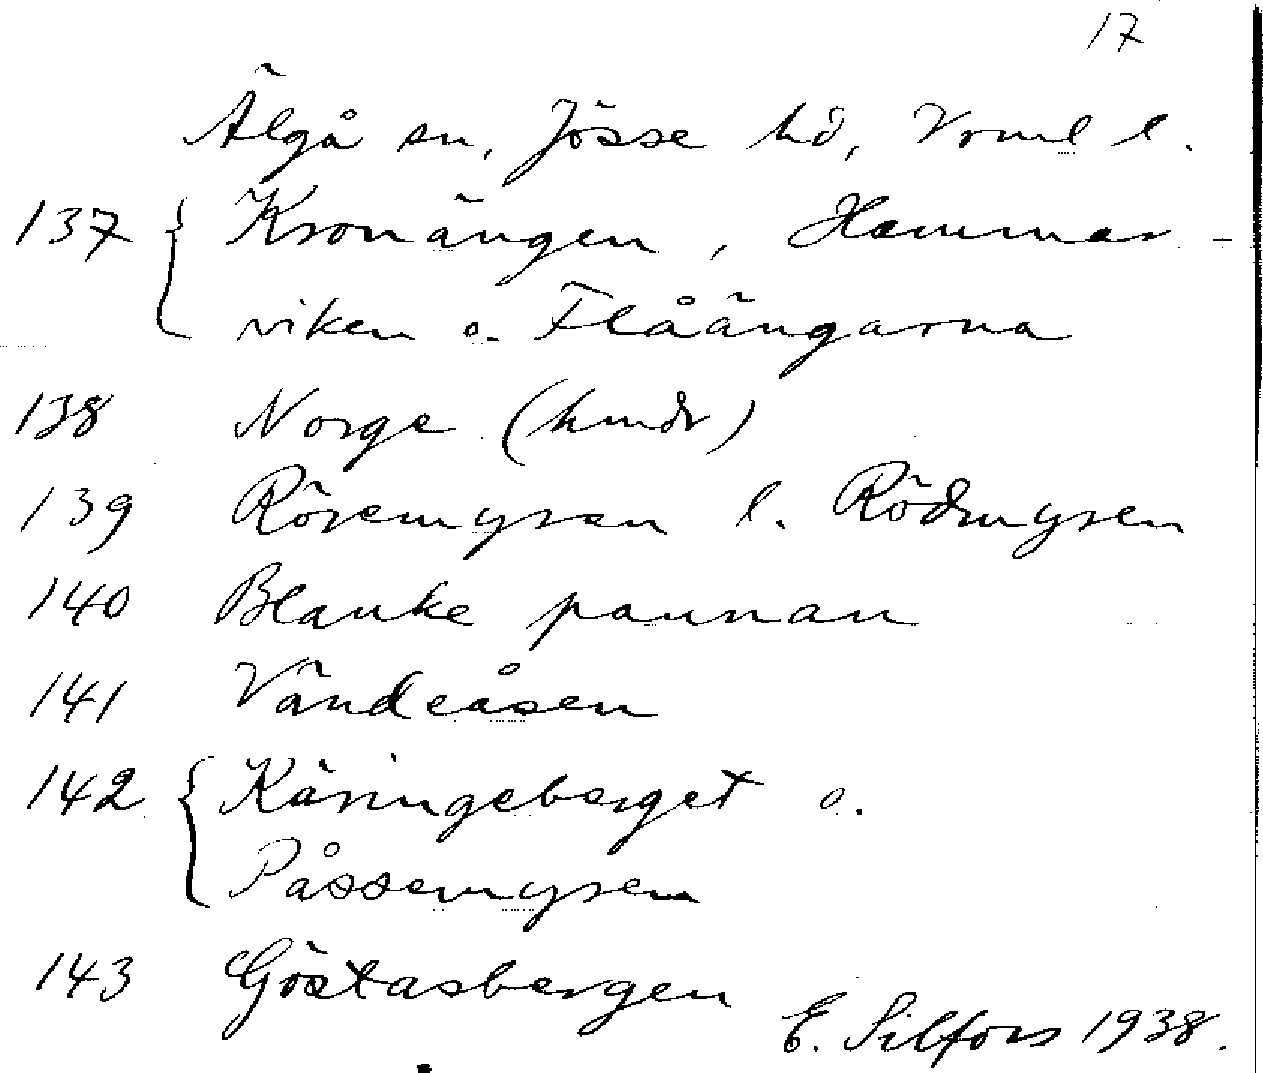 17
Älgå sn, Jösse hd, Vrml l.
137 { Kronängen, Hammar-
viken o. Flåängarna
138 Norge (hmdr)
139 Rösemyren l. Rödmyren
140 Blanke pannan
141 Vändeåsen
142 { Käringeberget o.
Påssemyren
143 Göstasbergen
E. Silfors 1938.